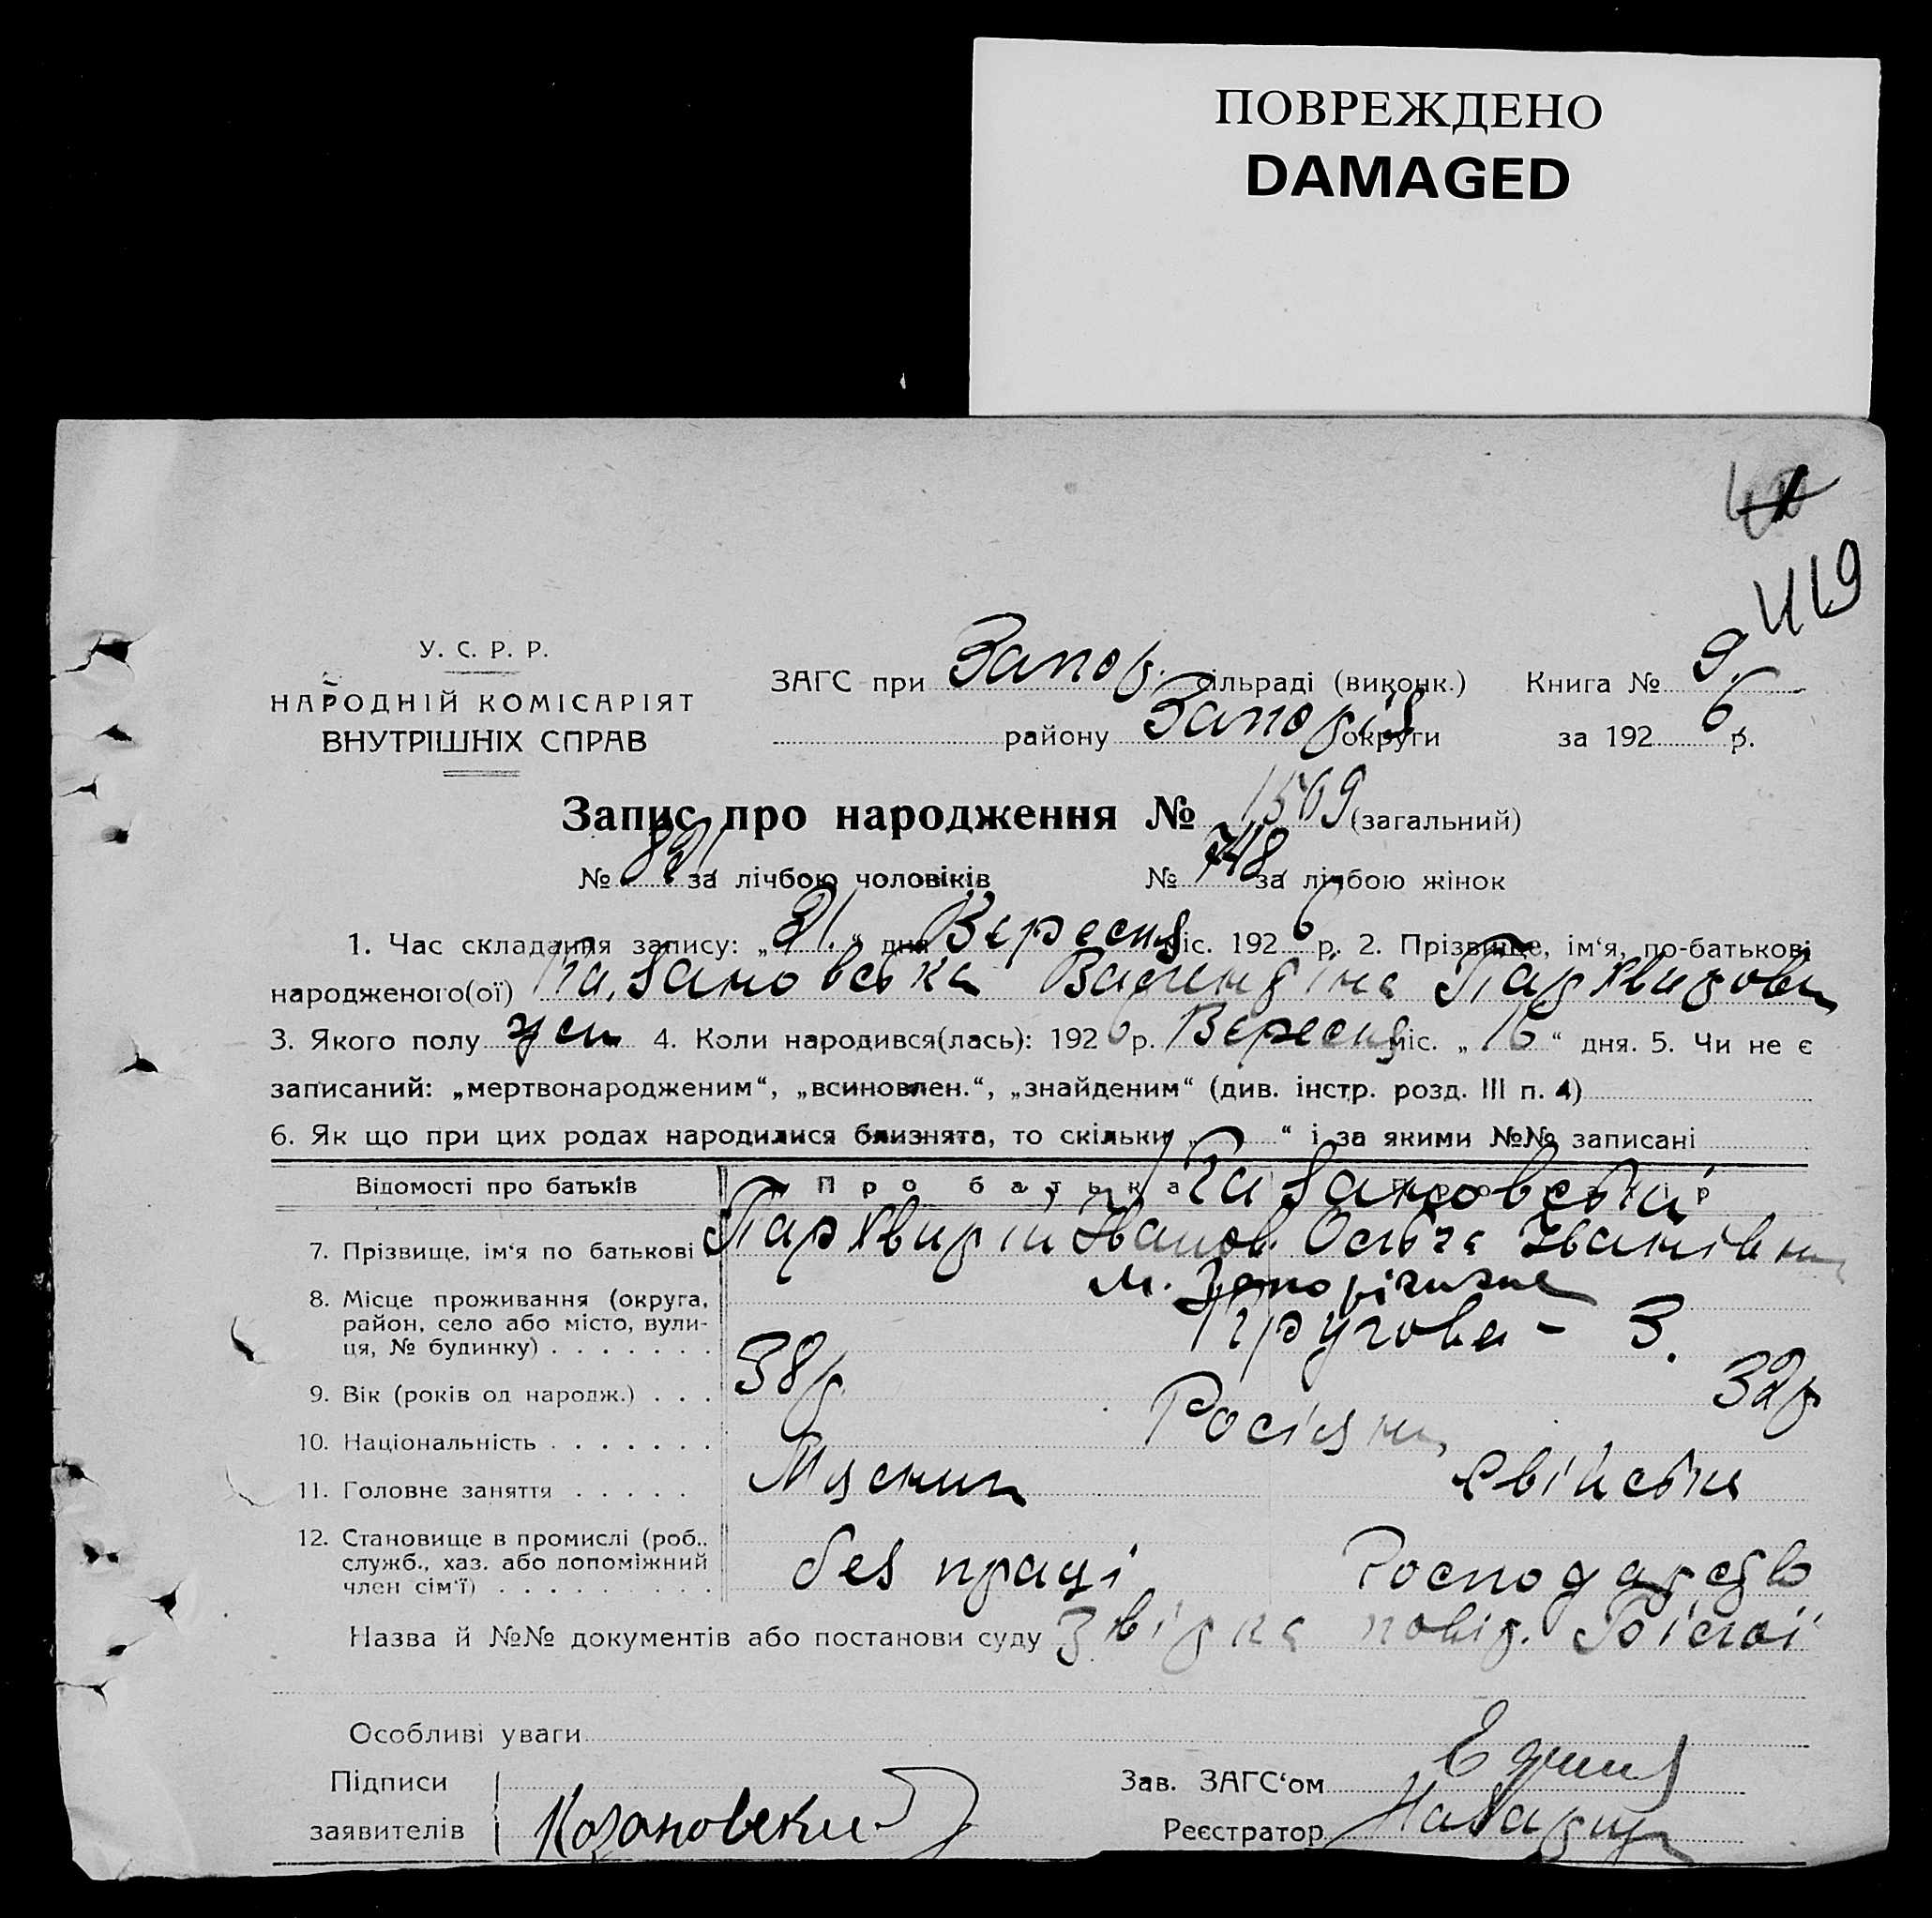 ПОВРЕЖДЕНО
DAMAGED
419
У. С. Р. Р.
НАРОДНІЙ КОМІСАРІЯТ
ВНУТРІШНІХ СПРАВ
ЗАГС при Запор. сільраді (виконк.) Книга № 9.
району Запоріз округи за 1926 р.
Запис про народження № 1569 (загальний)
№ 821 за лічбою чоловіків № 748 за лічбою жінок
1. Час складання запису: „21.“ дня Вересня міс. 1926 р. 2. Прізвище, ім‘я, по-батькові
народженого(ої) Казановська Валентіна
3. Якого полу жен 4. Коли народився(лась): 1926 р. Вересня міс. „16“ дня. 5. Чи не є
записаний: „мертвонародженим“, „всиновлен.“, „знайденим“ (див. інстр. розд. III п. 4)
6. Як що при цих родах народилися близнята, то скільки „ “ і за якими №№ записані
Відомості про батьків Про батька Казановські
7. Прізвище, ім‘я по батькові Іванов. Ольга Іванівна
8. Місце проживання (округа, район, село або місто, вулиця, № будинку) м. Запоріжже
Кругова - 3.
9. Вік (років од народж.) 38р. 32р
10. Національність Росіяни
11. Головне заняття Мясник свійське
12. Становище в промислі (роб., служб., хаз. або допоміжний член сім‘ї) без праці господарство
Назва й №№ документів або постанови суду
Особливі уваги
Підписи Зав. ЗАГС‘ом
заявителів Козановский Реєстратор